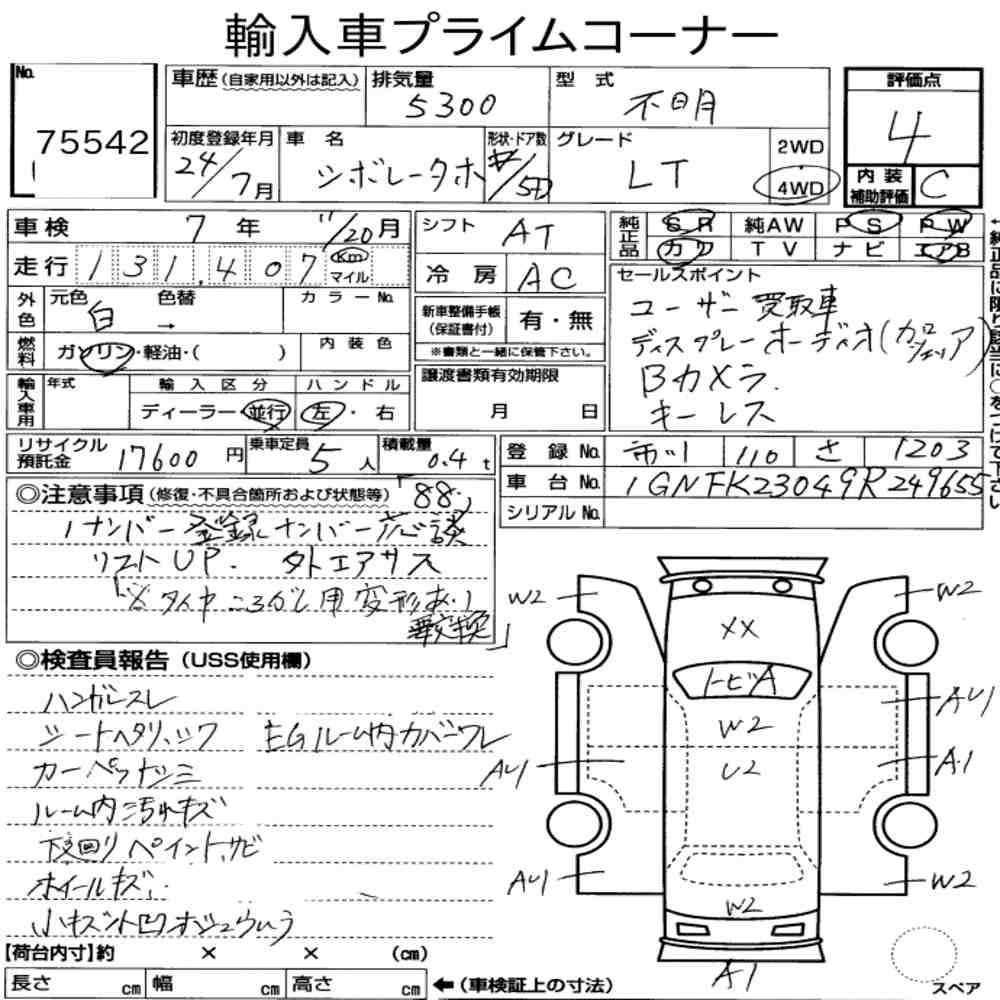 輸入車プライムコーナー
No.
75542
車歴(自家用以外は記入)
排気量
5300
型式
不明
評価点
4
内装
補助評価
C
初度登録年月
24/7月
車名
シボレータホ
形状・ドア数
/5D
グレード
LT
2WD
4WD
車検
7年 11/20月
走行
131,407
Km
マイル
シフト
AT
冷房
AC
純正品
SR 純AW PS PW
カワ TV ナビ エアB
←純正品に限り該当に○をつけて下さい
外色
元色
白
色替
→
カラーNo.
燃料
ガソリン・軽油・( )
内装色
新車整備手帳
(保証書付)
有・無
※書類と一緒に保管下さい。
輸入車用
年式
輸入区分
ディーラー・並行
ハンドル
左・右
譲渡書類有効期限
月 日
セールスポイント
ユーザー買取車
ディスプレーオーディオ(カロッツェリア)
Bカメラ
キーレス
リサイクル
預託金
17600円
乗車定員
5人
積載量
0.4t
登録No.
110 さ 1203
車台No.
1GNFK23049R249655
シリアルNo.
◎注意事項(修復・不具合箇所および状態等)
「88」
1ナンバー登録ナンバー応談
リフトUP. タトエアサス
「※タイヤころがし用変形あり
要交換」
◎検査員報告(USS使用欄)
ハンドルスレ
シートヘタリ、シワ EGルーム内カバーワレ
カーペットシミ
ルーム内汚れキズ
下廻りペイント、サビ
ホイールキズ
小キズ小凹オジュウ
【荷台内寸】約 × × (cm)
長さ cm 幅 cm 高さ cm ←(車検証上の寸法)
W2
W2
XX
トビA
W2
U2
AU1
AU1
A1
AU1
W2
W2
A1
スペア